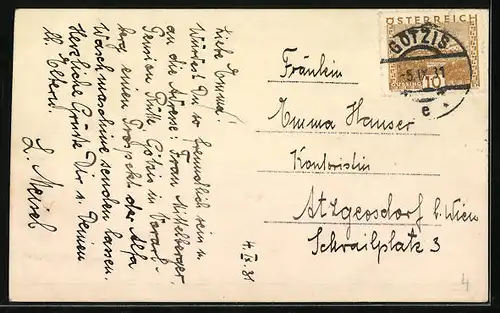 Liebe Emma!
Würdest Du so freundlich sein u.
an die Adresse: Frau Mittelberger
Pension Rütte Götzis in Vorarl-
berg einen Prospekt der Alfa
Waschmaschine senden lassen.
Herzliche Grüße Dir u. Deinen
ll. Eltern.
4. IX. 31
ÖSTERREICH
10
GROSCHEN
GÖTZIS
31
e
Fräulein
Emma Hauser
Kontoristin
Atzgersdorf b. Wien
Schrailplatz 3
4